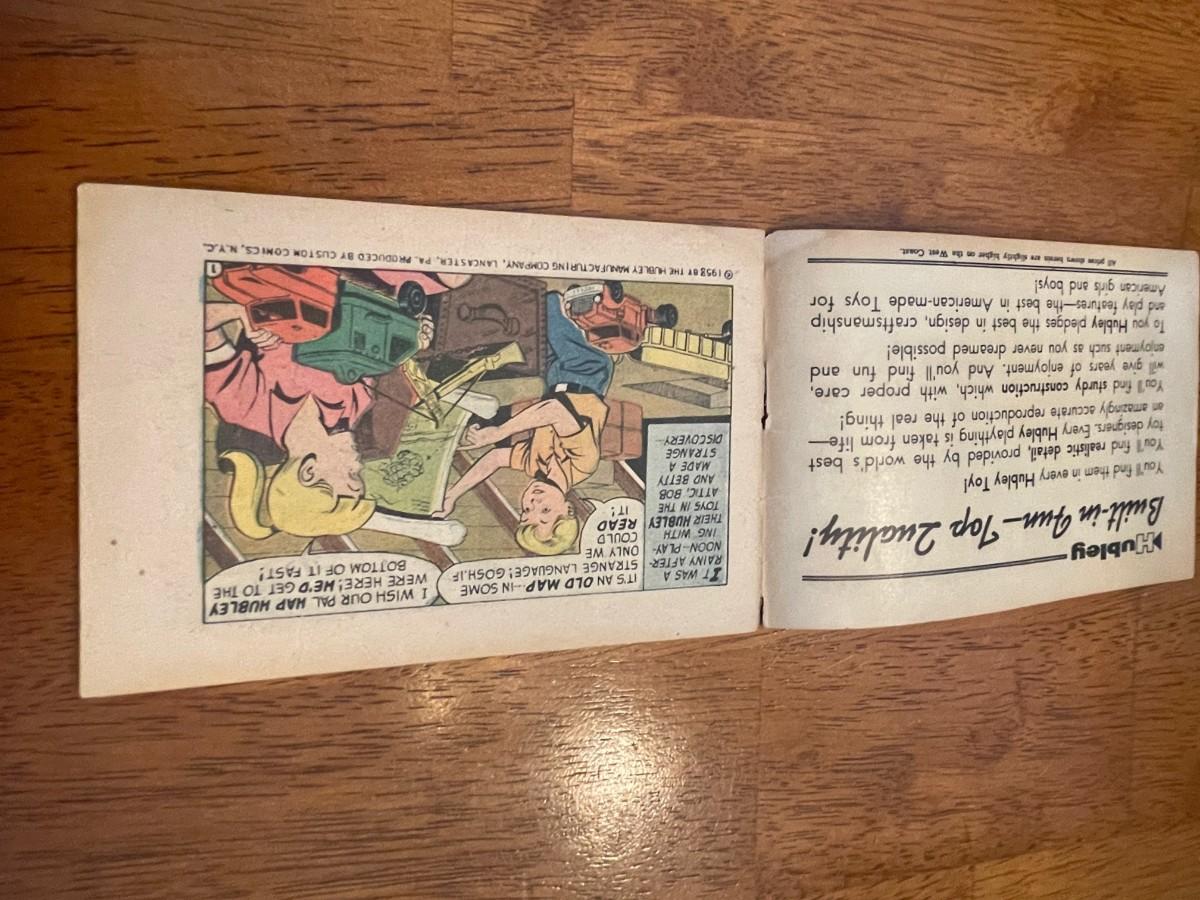 Hubley
Built-in Fun—Top Quality!
You'll find them in every Hubley Toy!
You'll find realistic detail, provided by the world's best
toy designers. Every Hubley plaything is taken from life—
an amazingly accurate reproduction of the real thing!
You'll find sturdy construction which, with proper care,
will give years of enjoyment. And you'll find fun and
enjoyment such as you never dreamed possible!
To you Hubley pledges the best in design, craftsmanship
and play features—the best in American-made Toys for
American girls and boys!
All prices shown herein are slightly higher on the West Coast.
IT WAS A
RAINY AFTER-
NOON—PLAY-
ING WITH
THEIR HUBLEY
TOYS IN THE
ATTIC, BOB
AND BETTY
MADE A
STRANGE
DISCOVERY—
IT'S AN OLD MAP--IN SOME
STRANGE LANGUAGE! GOSH, IF
ONLY WE
COULD
READ
IT!
I WISH OUR PAL HAP HUBLEY
WERE HERE! HE'D GET TO THE
BOTTOM OF IT FAST!
1
© 1958 BY THE HUBLEY MANUFACTURING COMPANY, LANCASTER, PA. PRODUCED BY CUSTOM COMICS, N.Y.C.